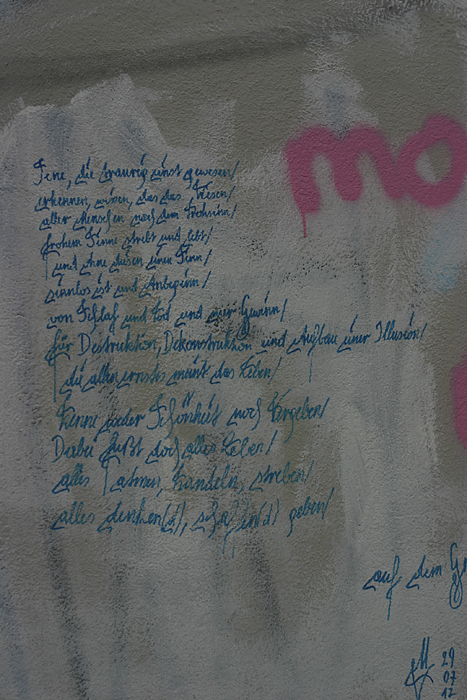 Jene, die traurig einst gewesen/
erkennen, wissen, das das Wesen/
aller Menschen nach dem Frohsinn/
frohem Sinne strebt und lebt/
und ohne diesen einen Sinn/
sinnlos ist und Anbeginn/
von Schlaf und Tod und nur Gewinn/
für Destruktion, Dekonstruktion und Aufbau einer Illusion/
die allen ernstes meint das Leben/
Kenne weder Schönheit noch Vergeben/
Dabei fußt doch alles Leben/
alles atmen, handeln, streben/
alles denken(d), schaffen(d) geben/
mo
auf dem Ge
M
29
07
12